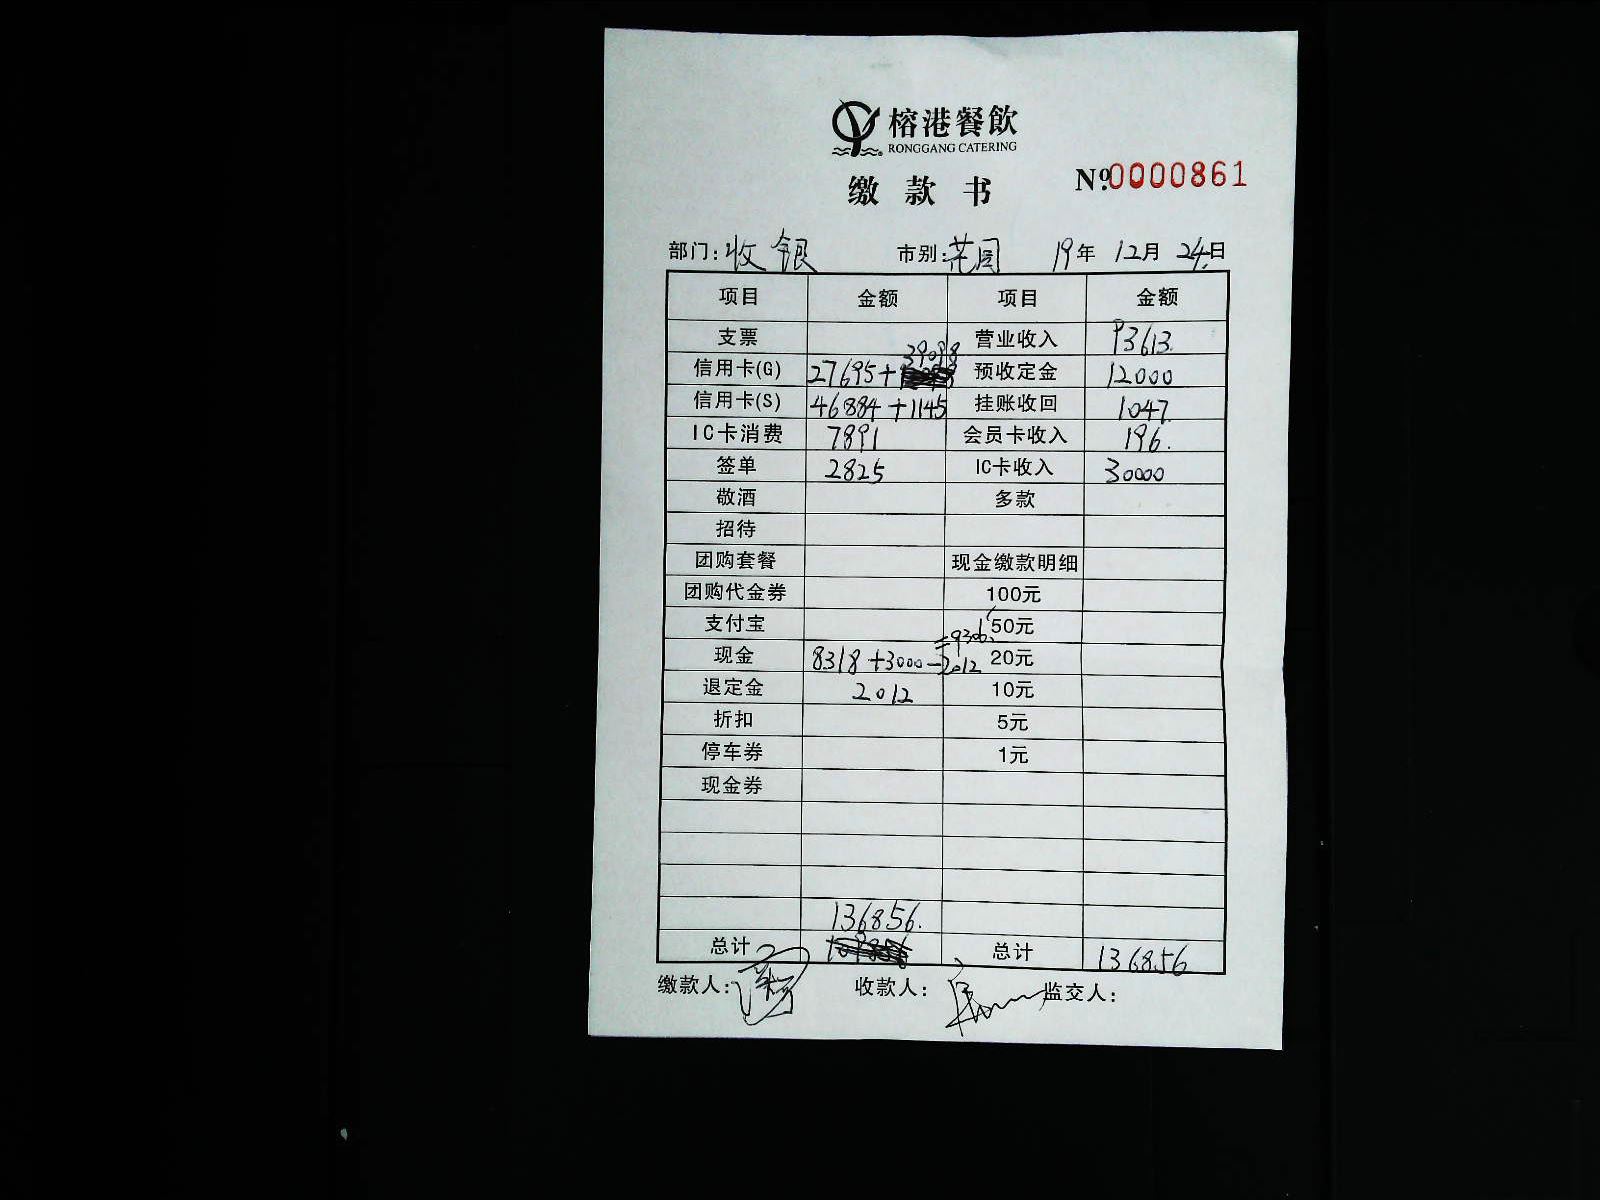 榕港餐飲
RONGGANG CATERING
缴款书
Nº 0000861
部门: 收银 市别: 花园 19年 12月 24日
项目 金额 项目 金额
支票 营业收入 93613
39098
信用卡(G) 27695+ 预收定金 12000
信用卡(S) 46884+1145 挂账收回 1047
IC卡消费 7891 会员卡收入 196.
签单 2825 IC卡收入 30000
敬酒 多款
招待
团购套餐 现金缴款明细
团购代金券 100元
支付宝 50元
=9306
现金 8318+3000-2012 20元
退定金 2012 10元
折扣 5元
停车券 1元
现金券
136856.
总计 总计 136856
缴款人: 收款人: 监交人: